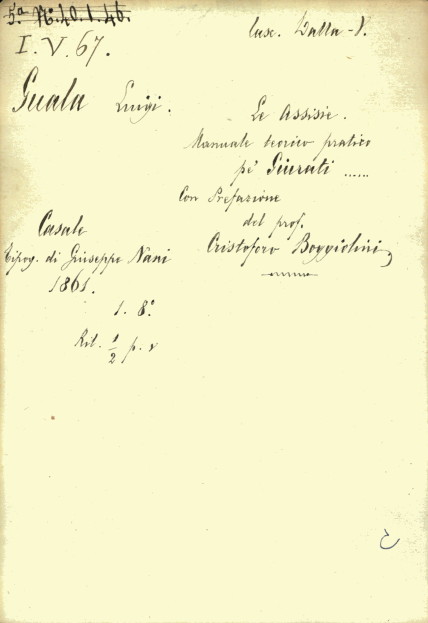 5.ª N. 40. 1. 46.
I. V. 67.
Guala Luigi.
Le Assisie.
Manuale teorico pratico
pe' Giurati ......
Con Prefazione
del prof.
Cristoforo Boggiolini
Casale
Tipog. di Giuseppe Nani
1861.
1. 8.º
Ril. 1/2 p. v